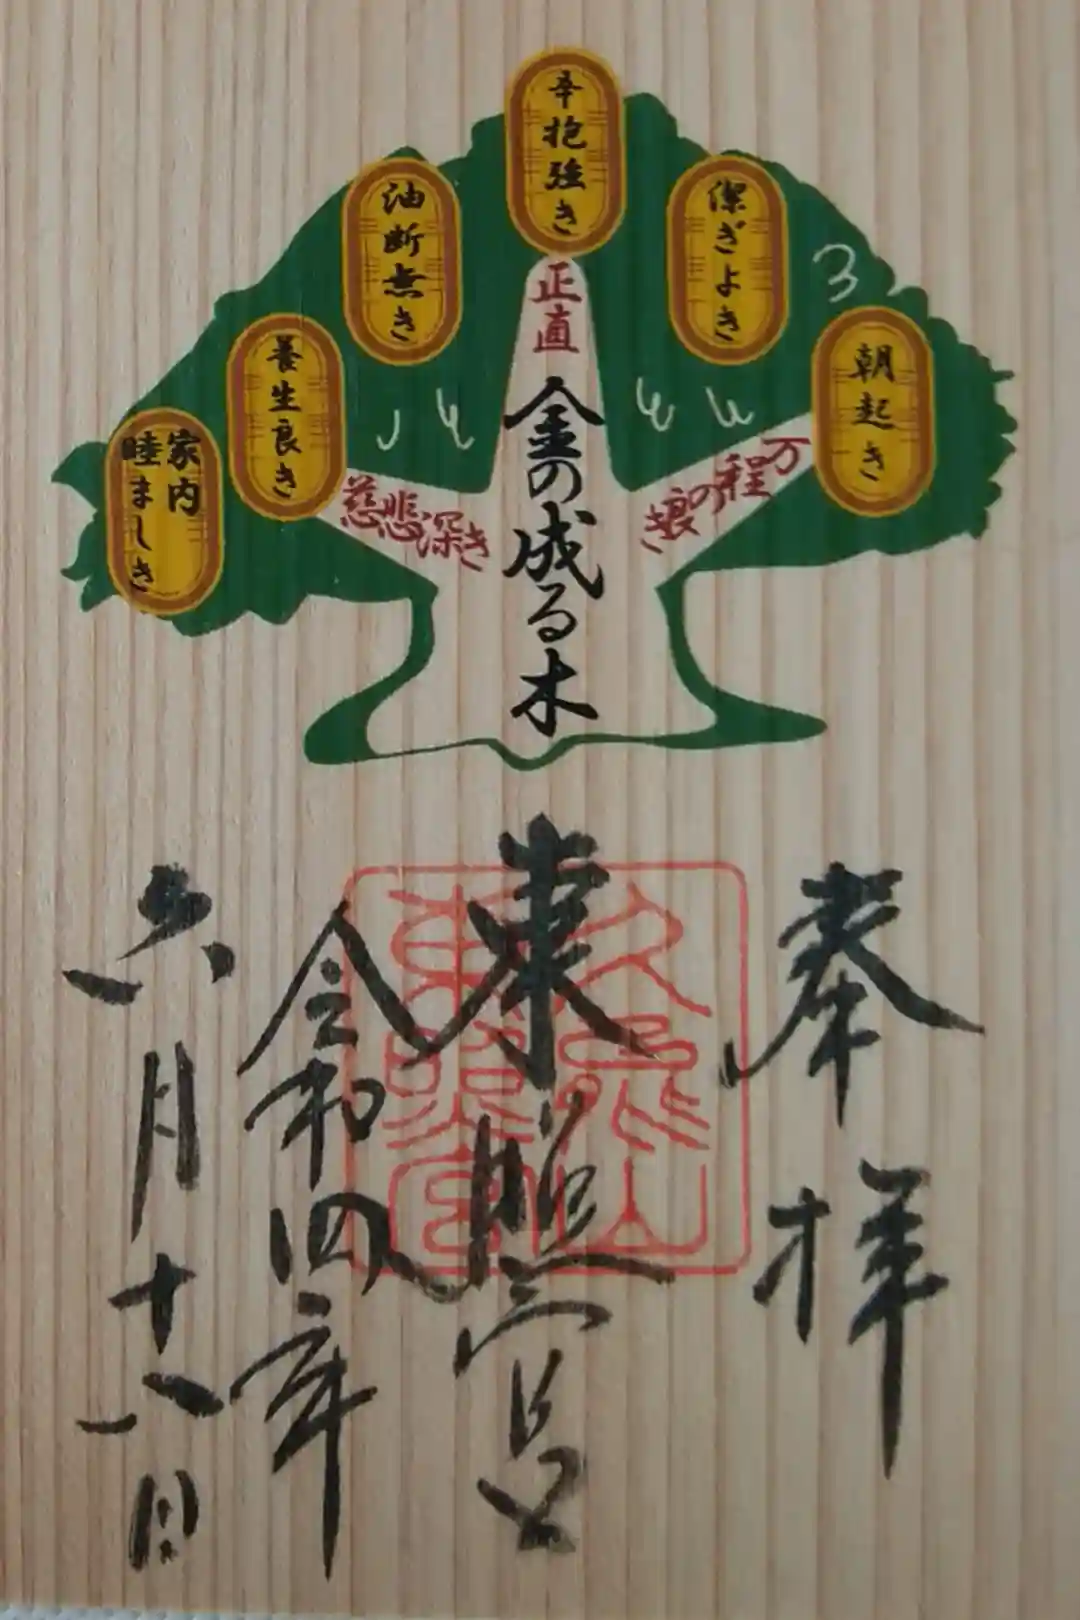 朝起き
潔ぎよき
辛抱強き
油断無き
養生良き
家内
睦ましき
万の程の良き
正直
慈悲深き
金の成る木
奉拝
東照宮
久能山
東照宮
令和四年
六月十八日